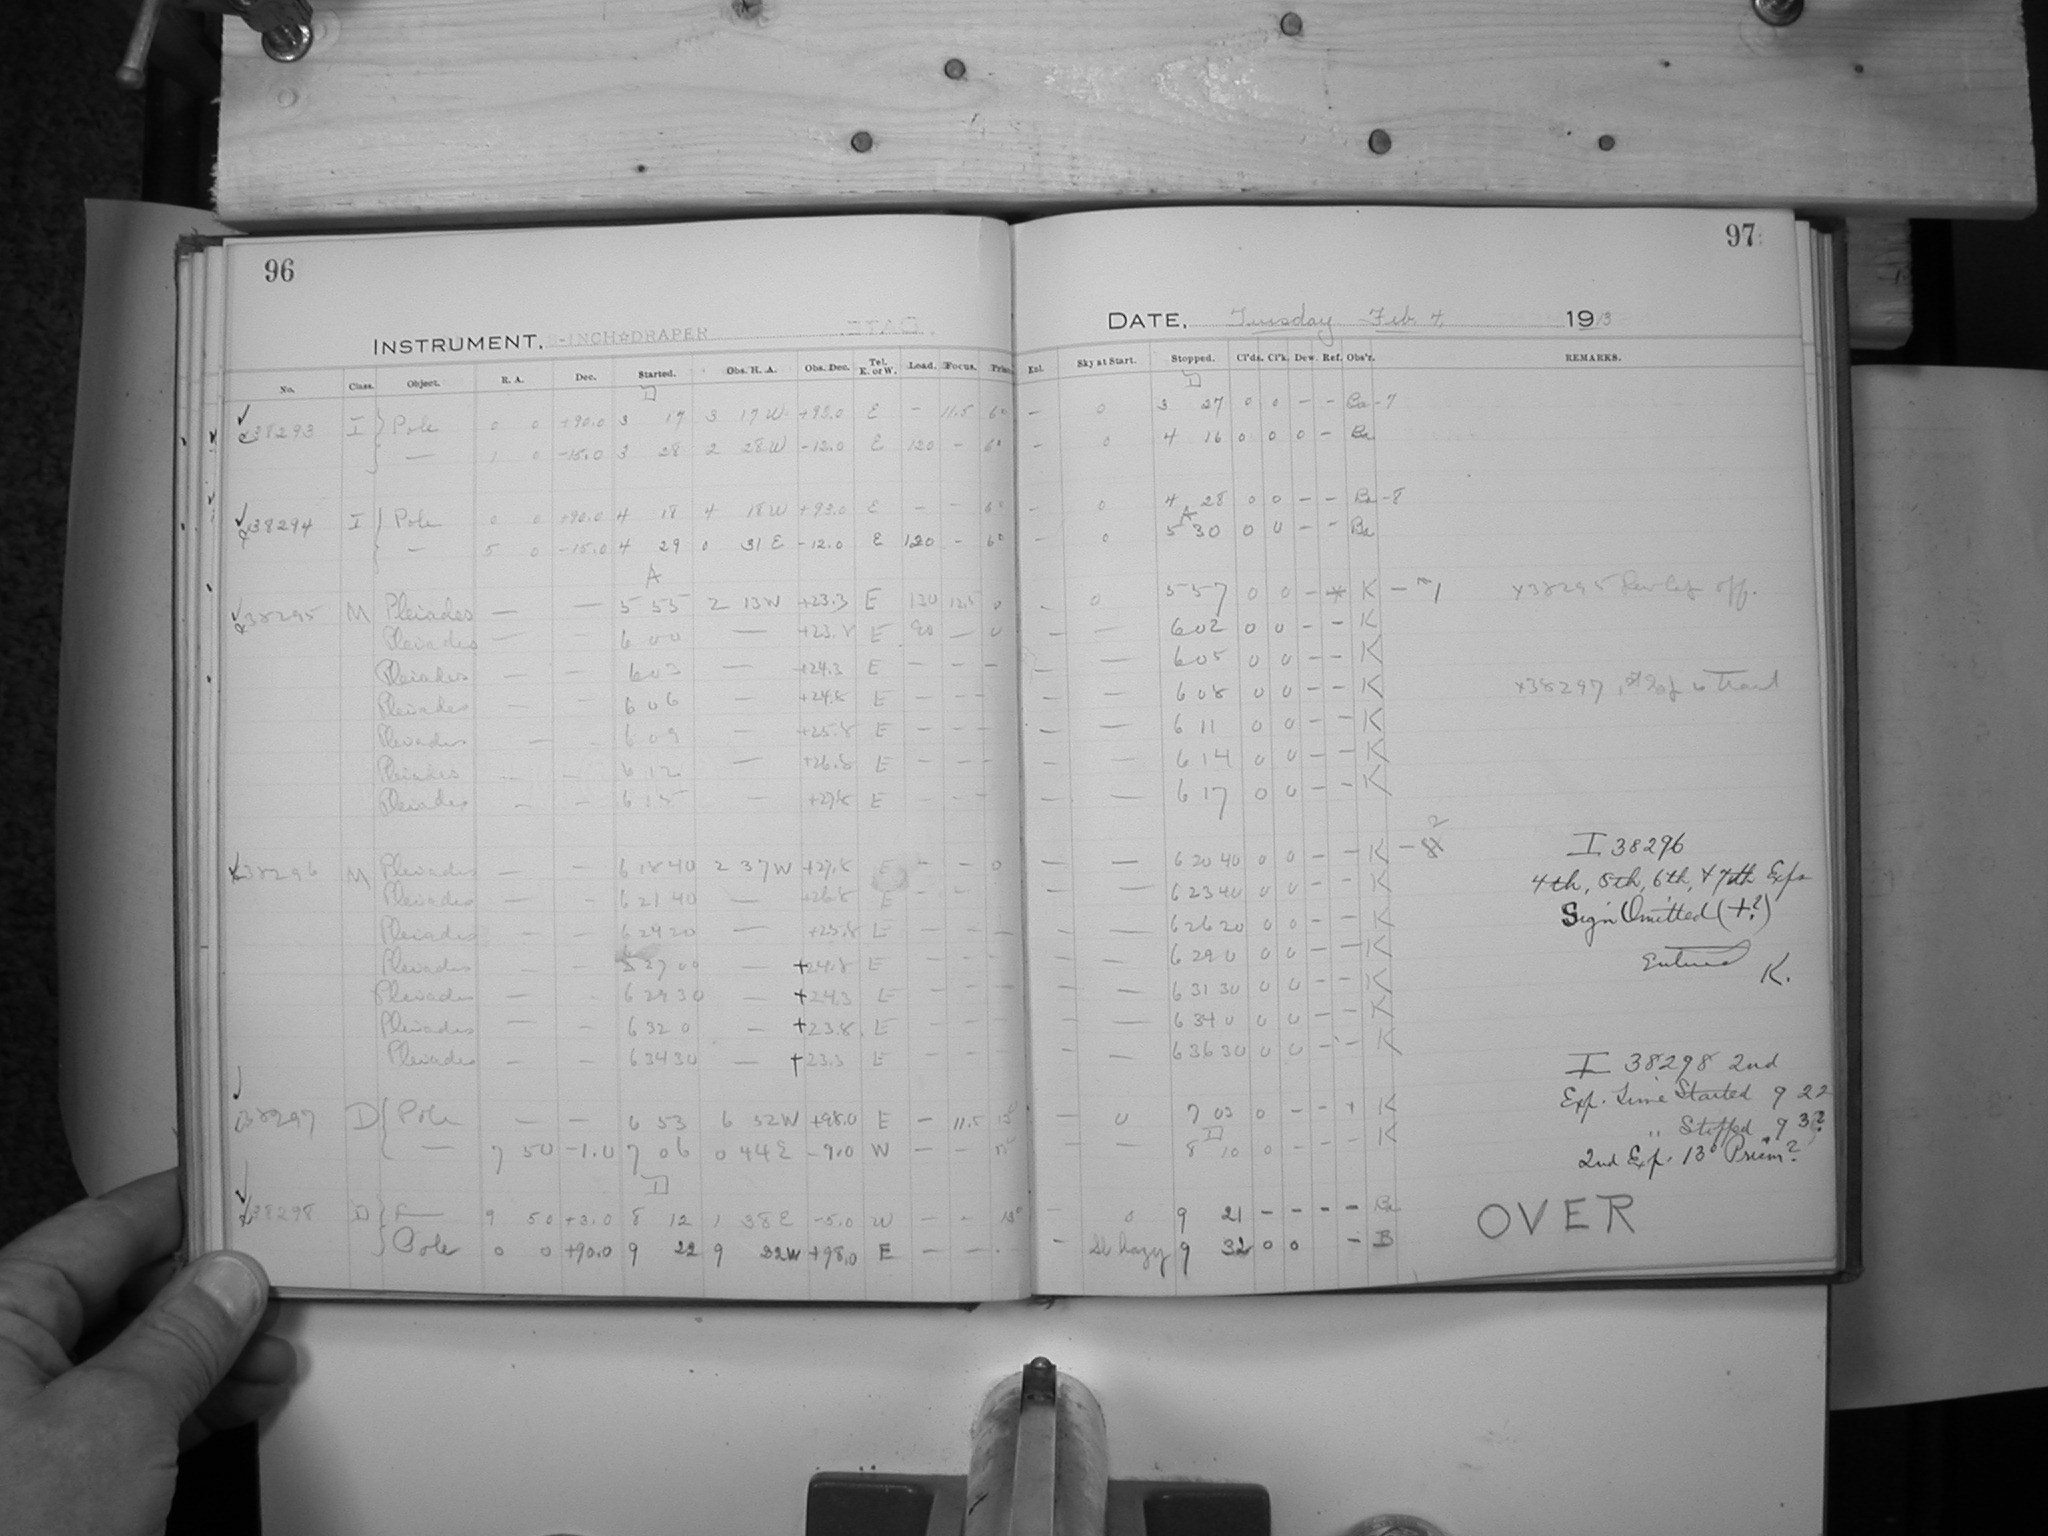 96
INSTRUMENT. 8-INCH DRAPER
No. Class. Object. R. A. Dec. Started. Obs. H. A. Obs. Dec. Tel. E. or W. Load. Focus. Prism
D
38293 I Pole 0 0 +90.0 3 17 3 17 W +93.0 E - 11.5 6°
— 1 0 -15.0 3 28 2 28 W -12.0 E 120 - 6°
38294 I Pole 0 0 +90.0 4 18 4 18 W +93.0 E - - 6°
— 5 0 -15.0 4 29 0 31 E -12.0 E 120 - 6°
A
38295 M Pleiades — — 5 55 2 13 W +23.3 E 130 12.5 0
Pleiades — 6 00 — +23.8 E 90 — 0
Pleiades — — 6 03 — +24.3 E - - -
Pleiades — — 6 06 — +24.8 E - - -
Pleiades — - 6 09 — +25.8 E - - -
Pleiades — — 6 12 — +26.8 E - - -
Pleiades - - 6 15 — +27.8 E - - -
38296 M Pleiades — - 6 18 40 2 37 W +27.8 E - - 0
Pleiades — - 6 21 40 — +26.8 E
Pleiades — - 6 24 20 — +25.8 E - - -
Pleiades — - 6 27 00 — +24.8 E - - -
Pleiades — - 6 29 30 — +24.3 E - - -
Pleiades — - 6 32 0 — +23.8 E - - -
Pleiades — - 6 34 30 — +23.3 E - - -
38297 D Pole — — 6 53 6 52 W +98.0 E - 11.5 13°
— 7 50 -1.0 7 06 0 44 E -9.0 W — -
D
38298 D — 9 50 +3.0 8 12 1 38 E -5.0 W — - 13°
Pole 0 0 +90.0 9 22 9 32 W +98.0 E — -
97
DATE. Tuesday Feb 4, 1913
Ent. Sky at Start. Stopped. Cl'ds. Cl'k. Dew. Ref. Obs'r. REMARKS.
D
- 0 3 27 0 0 - - Ba -7
- 0 4 16 0 0 0 - Ba
- 0 4 28 0 0 - - Ba -8
A
- 0 5 30 0 0 - - Ba
- 0 5 57 0 0 - * K - 1 38295 off.
— — 6 02 0 0 - - K
— — 6 05 0 0 - - K
— — 6 08 0 0 - - K 38297
— — 6 11 0 0 - - K
— — 6 14 0 0 - - K
— — 6 17 0 0 - - K
— — 6 20 40 0 0 - - K - 2
— — 6 23 40 0 0 - - K
— — 6 26 20 0 0 - - K
— — 6 29 0 0 0 - - K
— — 6 31 30 0 0 - - K
— — 6 34 0 0 0 - - K
— — 6 36 30 0 0 - - K
— 0 7 03 0 - - + K
D
— — 8 10 0 - - - K
- 0 9 21 - - - - Ba
- Sl hazy 9 32 0 0 - B
I 38296
4th, 5th, 6th, & 7th Exps
Sign Omitted (+?)
Entered K.
I 38298 2nd
Exp. Time Started 9 22
" Stopped 9 32
2nd Exp. 13° Prism?
OVER